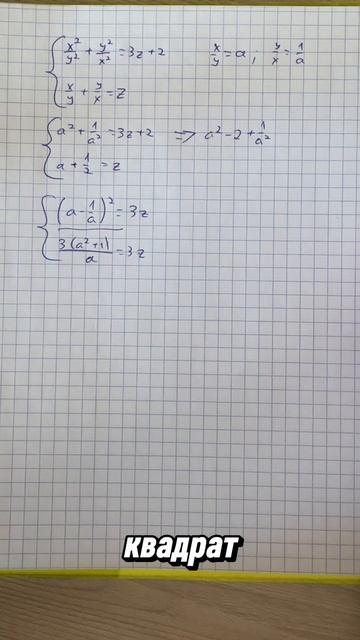 x²/y² + y²/x² = 3z + 2    x/y = a ; y/x = 1/a
x/y + y/x = z
a² + 1/a² = 3z + 2 ⇒ a² - 2 + 1/a²
a + 1/2 = z
(a - 1/a)² = 3z
3(a² + 1)/a = 3z
квадрат